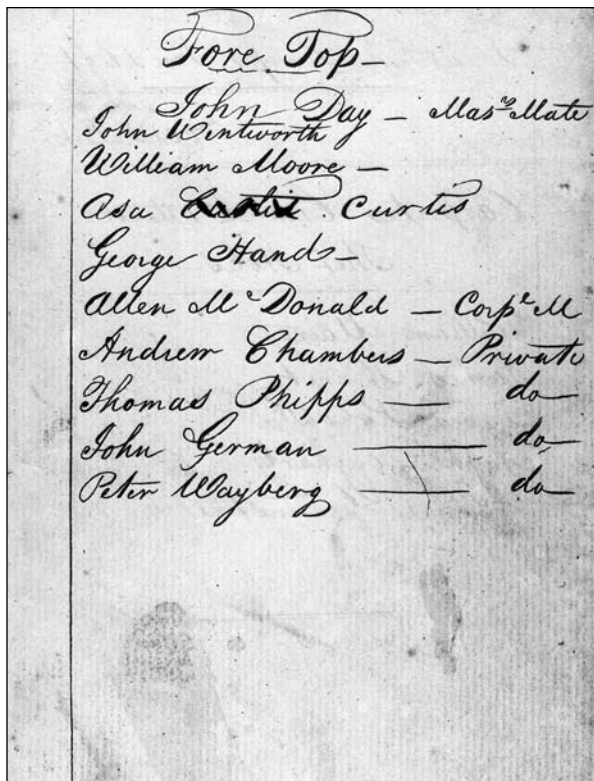 Fore Top-
John Day - Mas.rs Mate
John Wentworth
William Moore -
Asa Curtis
George Hand -
Allen McDonald - Corpl M
Andrew Chambers - Private
Thomas Phipps — do
John German — do
Peter Wayberg — do